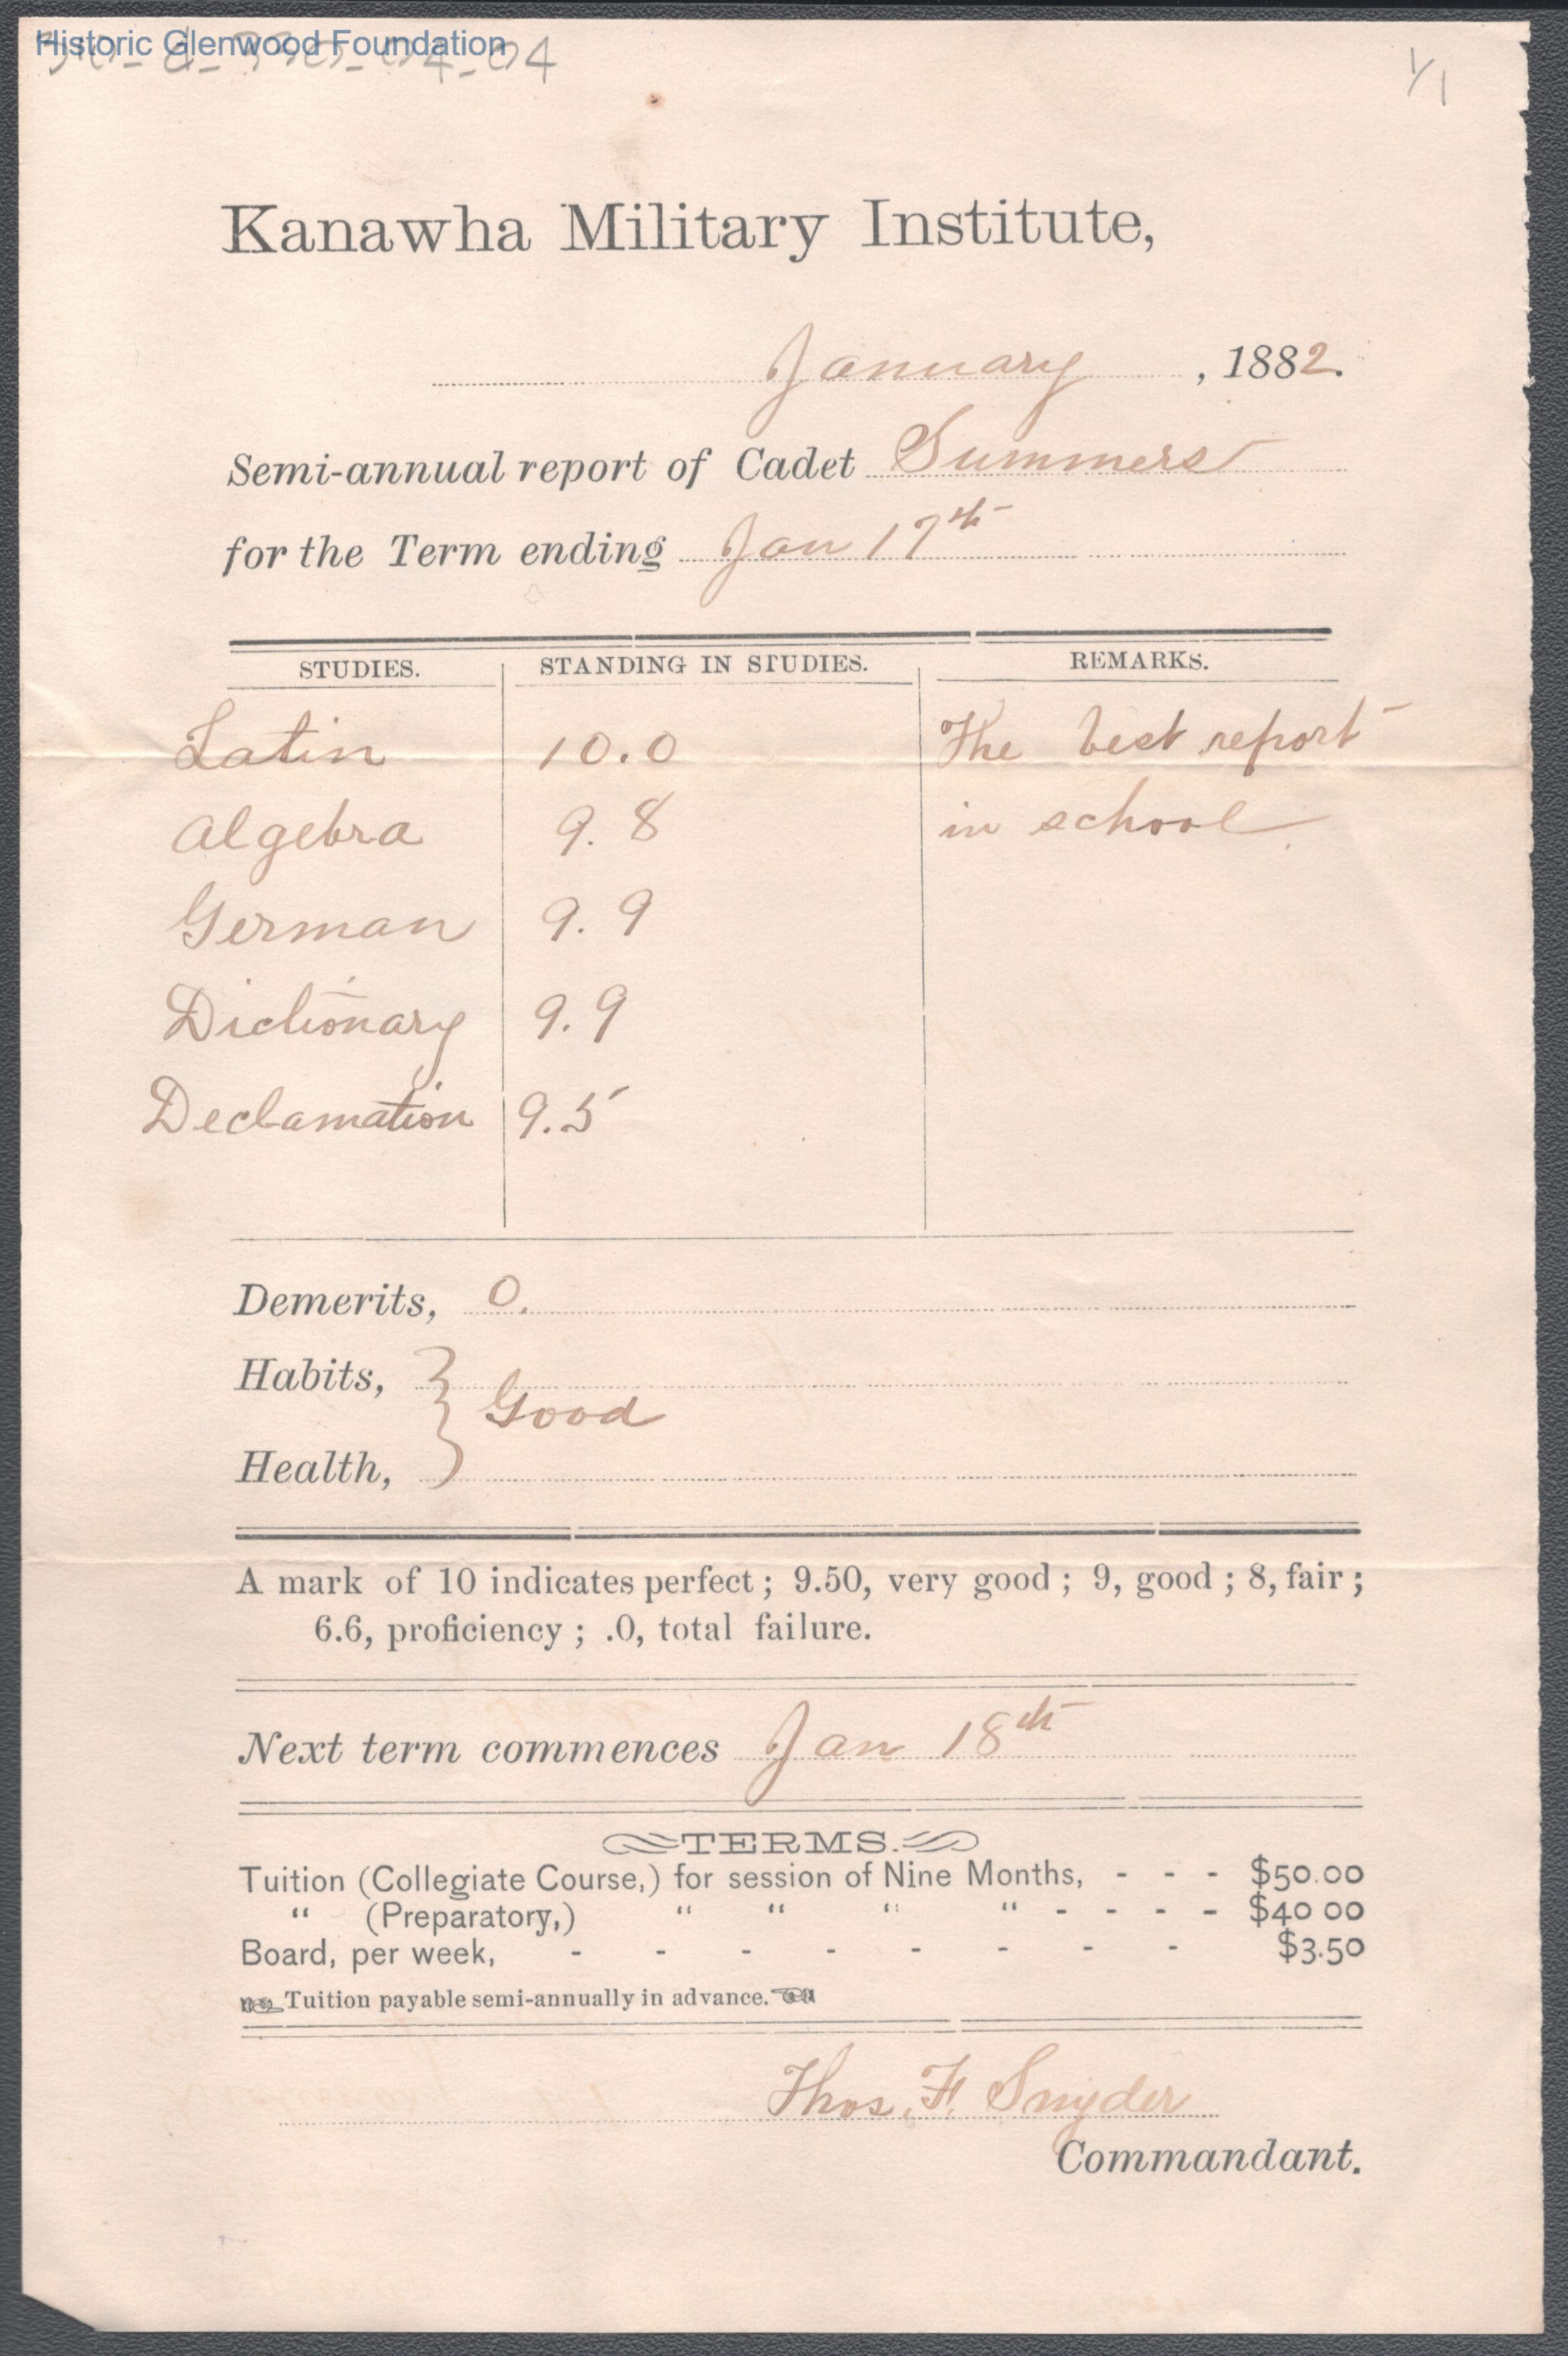 Historic Glenwood Foundation
1/1
Kanawha Military Institute,
January, 1882.
Semi-annual report of Cadet Summers
for the Term ending Jan 17th
STUDIES. STANDING IN STUDIES. REMARKS.
Latin 10.0 The best report
Algebra 9.8 in school
German 9.9
Dictionary 9.9
Declamation 9.5
Demerits, 0.
Habits, } Good
Health,
A mark of 10 indicates perfect; 9.50, very good; 9, good; 8, fair;
6.6, proficiency; .0, total failure.
Next term commences Jan 18th
TERMS.
Tuition (Collegiate Course,) for session of Nine Months, - - - $50.00
" (Preparatory,) " " " " - - - - $40 00
Board, per week, - - - - - - - - $3.50
Tuition payable semi-annually in advance.
Thos. F. Snyder
Commandant.